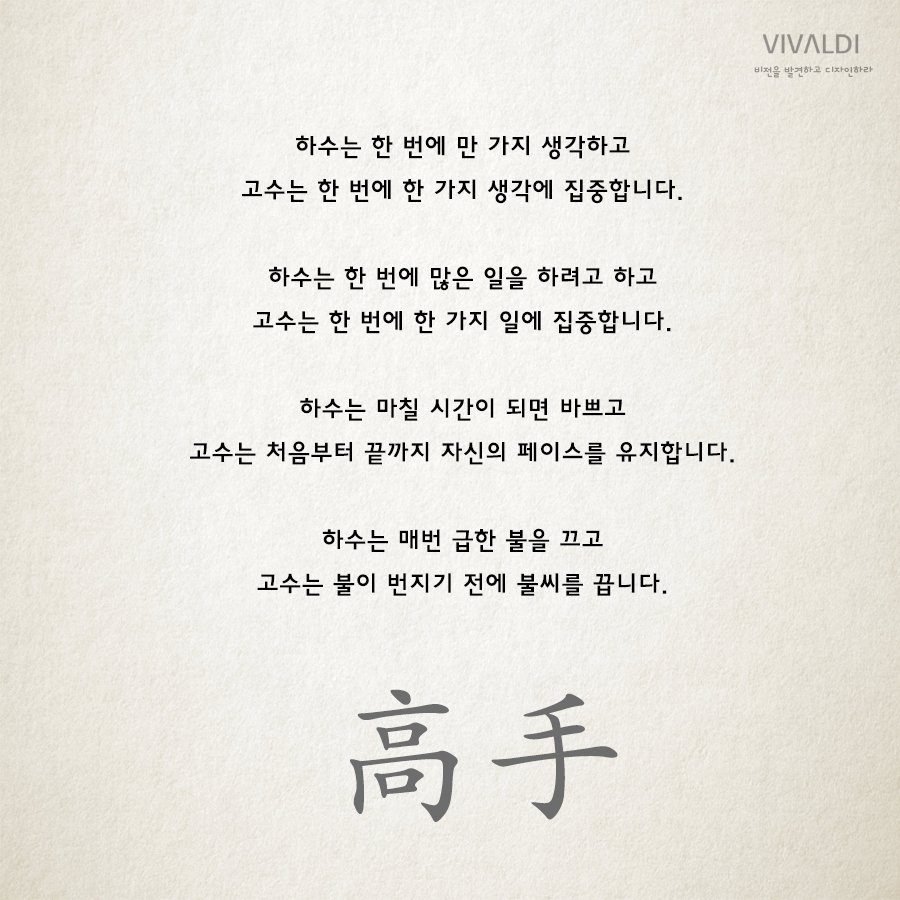 VIVALDI
비전을 발견하고 디자인하라
하수는 한 번에 만 가지 생각하고
고수는 한 번에 한 가지 생각에 집중합니다.
하수는 한 번에 많은 일을 하려고 하고
고수는 한 번에 한 가지 일에 집중합니다.
하수는 마칠 시간이 되면 바쁘고
고수는 처음부터 끝까지 자신의 페이스를 유지합니다.
하수는 매번 급한 불을 끄고
고수는 불이 번지기 전에 불씨를 끕니다.
高手